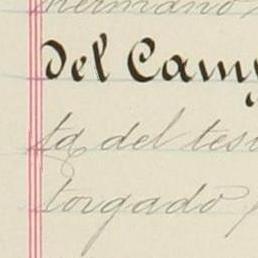 hermano
del Camp
ta del tes
torgado